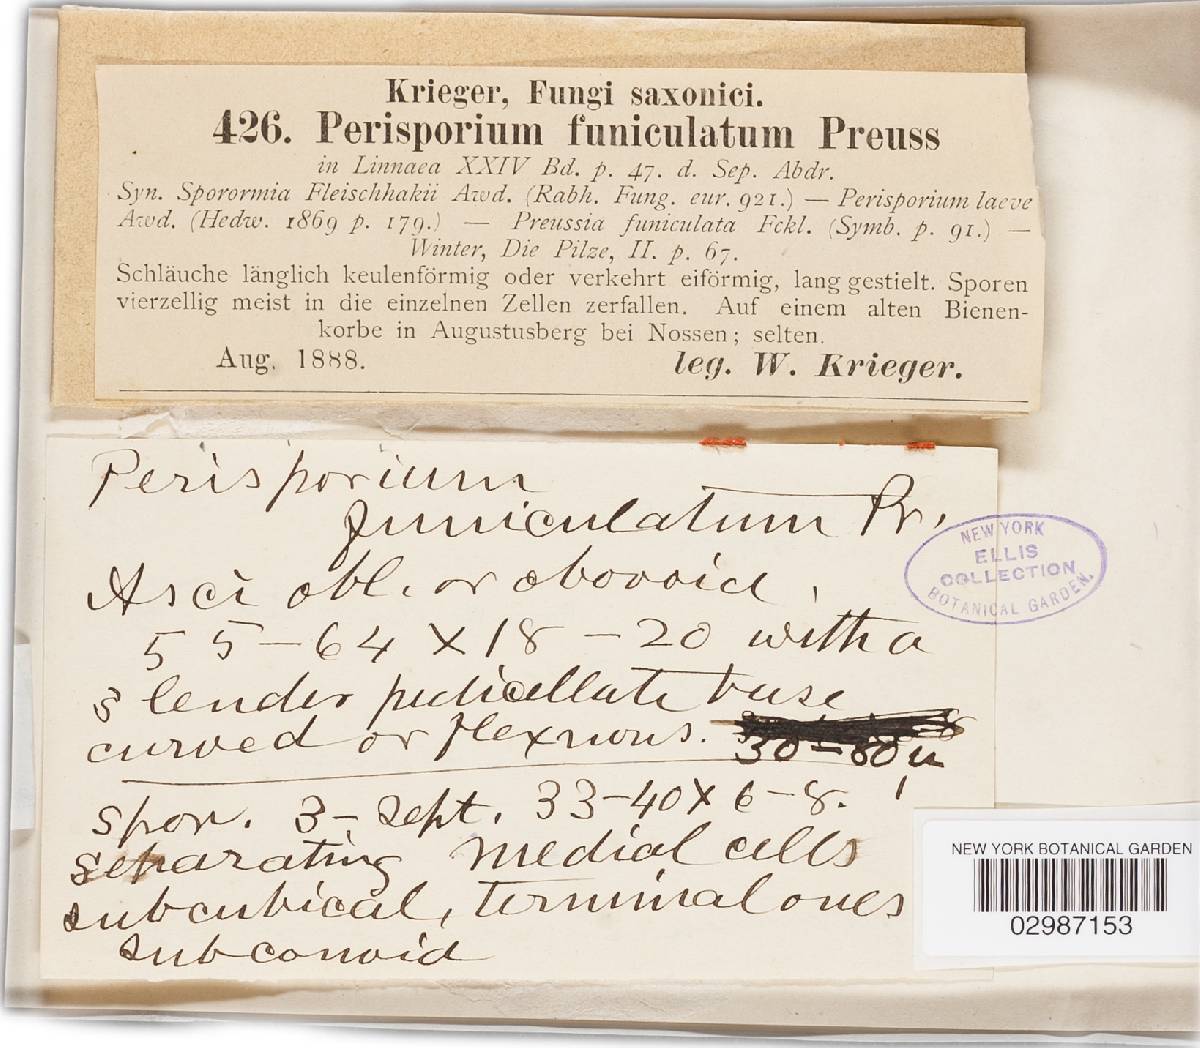 Krieger, Fungi saxonici.
426. Perisporium funiculatum Preuss
in Linnaea XXIV Bd. p. 47. d. Sep. Abdr.
Syn. Sporormia Fleischhakii Awd. (Rabh. Fung. eur. 921.) — Perisporium laeve
Awd. (Hedw. 1869 p. 179.) — Preussia funiculata Fckl. (Symb. p. 91.) —
Winter, Die Pilze, II. p. 67.
Schläuche länglich keulenförmig oder verkehrt eiförmig, lang gestielt. Sporen
vierzellig meist in die einzelnen Zellen zerfallen. Auf einem alten Bienen-
korbe in Augustusberg bei Nossen; selten.
Aug. 1888. leg. W. Krieger.
Perisporium
funiculatum Pr.
Asci obl. or obovoid,
55-64 X 18-20 with a
slender pedicellate base
curved or flexuous.
30-80 u
spor. 3-sept. 33-40 x 6-8.
separating medial cells
subcubical, terminal ones
subconoid
NEW YORK
ELLIS
COLLECTION
BOTANICAL GARDEN.
NEW YORK BOTANICAL GARDEN
02987153